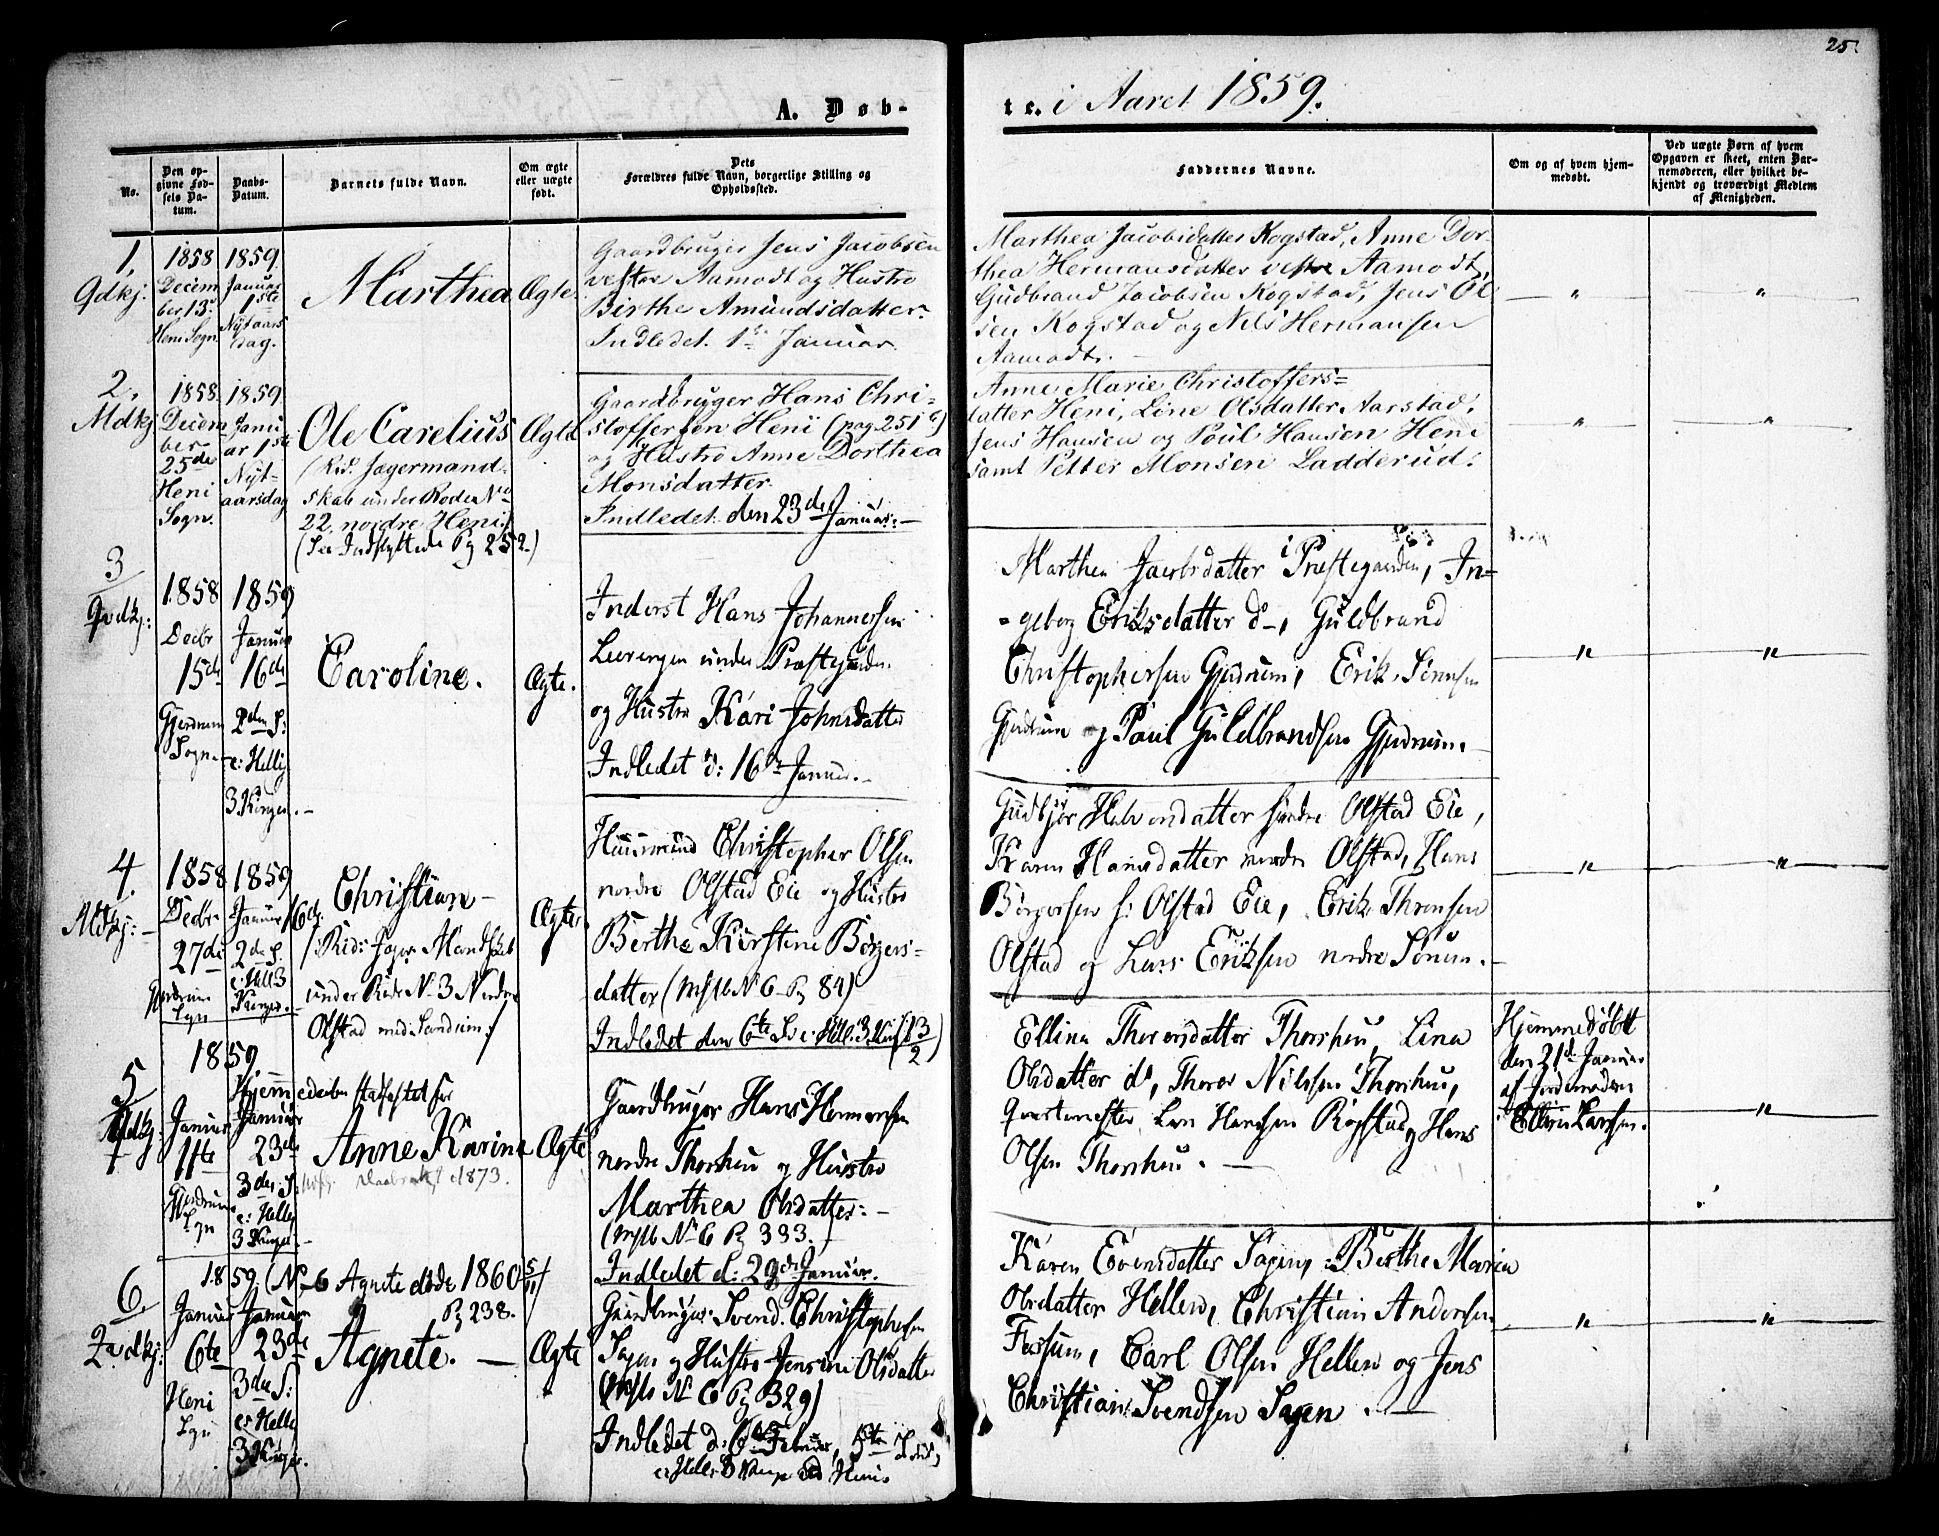 25.
A. Døb-
te. i Aaret 1859.
No.
Den op-
givne Fød-
sels Da-
tum.
Daabs-
Datum.
Barnets fulde Navn.
Om ægte
eller uægte
født.
Dets
Forældres fulde Navn, borgerlige Stilling og
Opholdssted.
Faddernes Navne.
Om og af hvem hjem-
medøbt.
Ved uægte Børn af hvem
Opgaven er skeet, enten Bar-
nemoderen, eller hvilket be-
kjendt og troværdigt Medlem
af Menigheden.
1.
Qdkj:
1858
Decem
ber 13.
Heni Sogn.
1859
Januar
1ste
Nytaars
dag.
Marthea
Ægte.
Gaardbruger Jens Jacobsen
vestre Aamodt og Hustro
Birthe Amundsdatter.
Indledet. 1ste Januar.
Marthea Jacobsdatter Kogstad, Anne Dor-
thea Hermansdatter vestre Aamodt,
Gudbrand Jacobsen Kogstad, Jens Ol-
sen Kogstad og Nils Hermansen
Aamodt. -
2.
Mdkj
1858
Decem
ber
25de
Heni
Sogn.
1859
Janu
ar 1ste
Nyt-
aarsdag
Ole Carelius
(Rid. Jægermand-
skab under Rode No
22 nordre Heni.)
(See Indflyttede Pg 252.)
Ægte
Gaardbruger Hans Chri-
stoffersen Heni (pag. 251)
og Hustro Anne Dorthea
Monsdatter
Indledet den 23de Januar. -
Anne Marie Christoffers-
datter Heni, Line Olsdatter Aarstad,
Jens Hansen og Poul Hansen Heni
samt Petter Monsen Ladderud.
3
Qvdkj:
1858
Decbr
15de
Gjerdrum
Sogn. -
1859
Januar
16de
2den S:
e: Hellig
3 Konger. -
Caroline.
Ægte.
Inderst Hans Johannessen
Leerengen under Præstgarden
og Hustro Kari Johnsdatter
Indledet d: 16de Januar. -
Marthea Jacobsdatter i Præstegaarden, In-
- geborg Eriksdatter do -, Guldbrand
Christophersen Gjerdrum, Erik Sørensen
Gjerdrum og Paul Guldbrandsen Gjerdrum. -
4.
Mdkj: -
1858
Decbr
27de
Gjerdrum
Sgn
1859
Januar 16de
2den S.
e: Hell 3
Konger. -
Christian -
/: Rid: Jæger Mandskab
under Rode No 3 Nordre
Olstad med Sandum :/
Ægte.
Huusmand Christopher Olsen
nordre Olstad Eie og Hustro
Berthe Kirstine Børgers-
datter (Msltb No 6 Pg 84)
Indledet den 6te S e: Hell. 3 Kon (13/2)
Gudbjør Halvorsdatter søndre Olstad Eie,
Karen Hansdatter nordre Olstad, Hans
Børgersen s: Olstad Eie, Erik Thronsen
Olstad og Lars Eriksen nordre Sørum. -
5
Qdkj
1859.
Januar
11te
Gjerdrum
Sgn
Hjemmedøben stadfæstet her
Januar
23de
3die S.
e: Hellig
3 Konger. -
Anne Karine
1873.
Ægte
Gaardbruger Hans Hermansen
nordre Thorshou og Hustro
Marthea Olsdatter: -
(Msltb No 6 Pg 333.)
Indledet d: 29de Januar.
Ellina Thorersdatter Thorshou, Lina
Olsdatter do, Thorer Nilssen Thorshou,
Qvartermester Lars Hanssen Rogstad og Hans
Olsen Thorshou. -
Hjemmedøbt
den 21de Januar
af Jordemoderen
Ellen Larsen.
6.
Qvdkj:
1859. (No 6 Agnete døde 1860 5/11)
Pg 238.
Januar
6te
Heni
Sgn
Januar
23de
3die S:
e: Helli
3 Konger.
Agnete. -
Ægte
Gaardbruger Svend Christophersen
Sagen og Hustro Jensine Olsdatter
(Msltb No 6 Pg 329)
Indledet d: 6te Februar, 5te Sønd,
e: Hell 3 Kong ved Heni.
Karen Evensdatter Sagen, Berthe Maria
Olsdatter Hellen, Christian Andersen
Fossum, Carl Olsen Hellen og Jens
Christian Svendsen Sagen. -